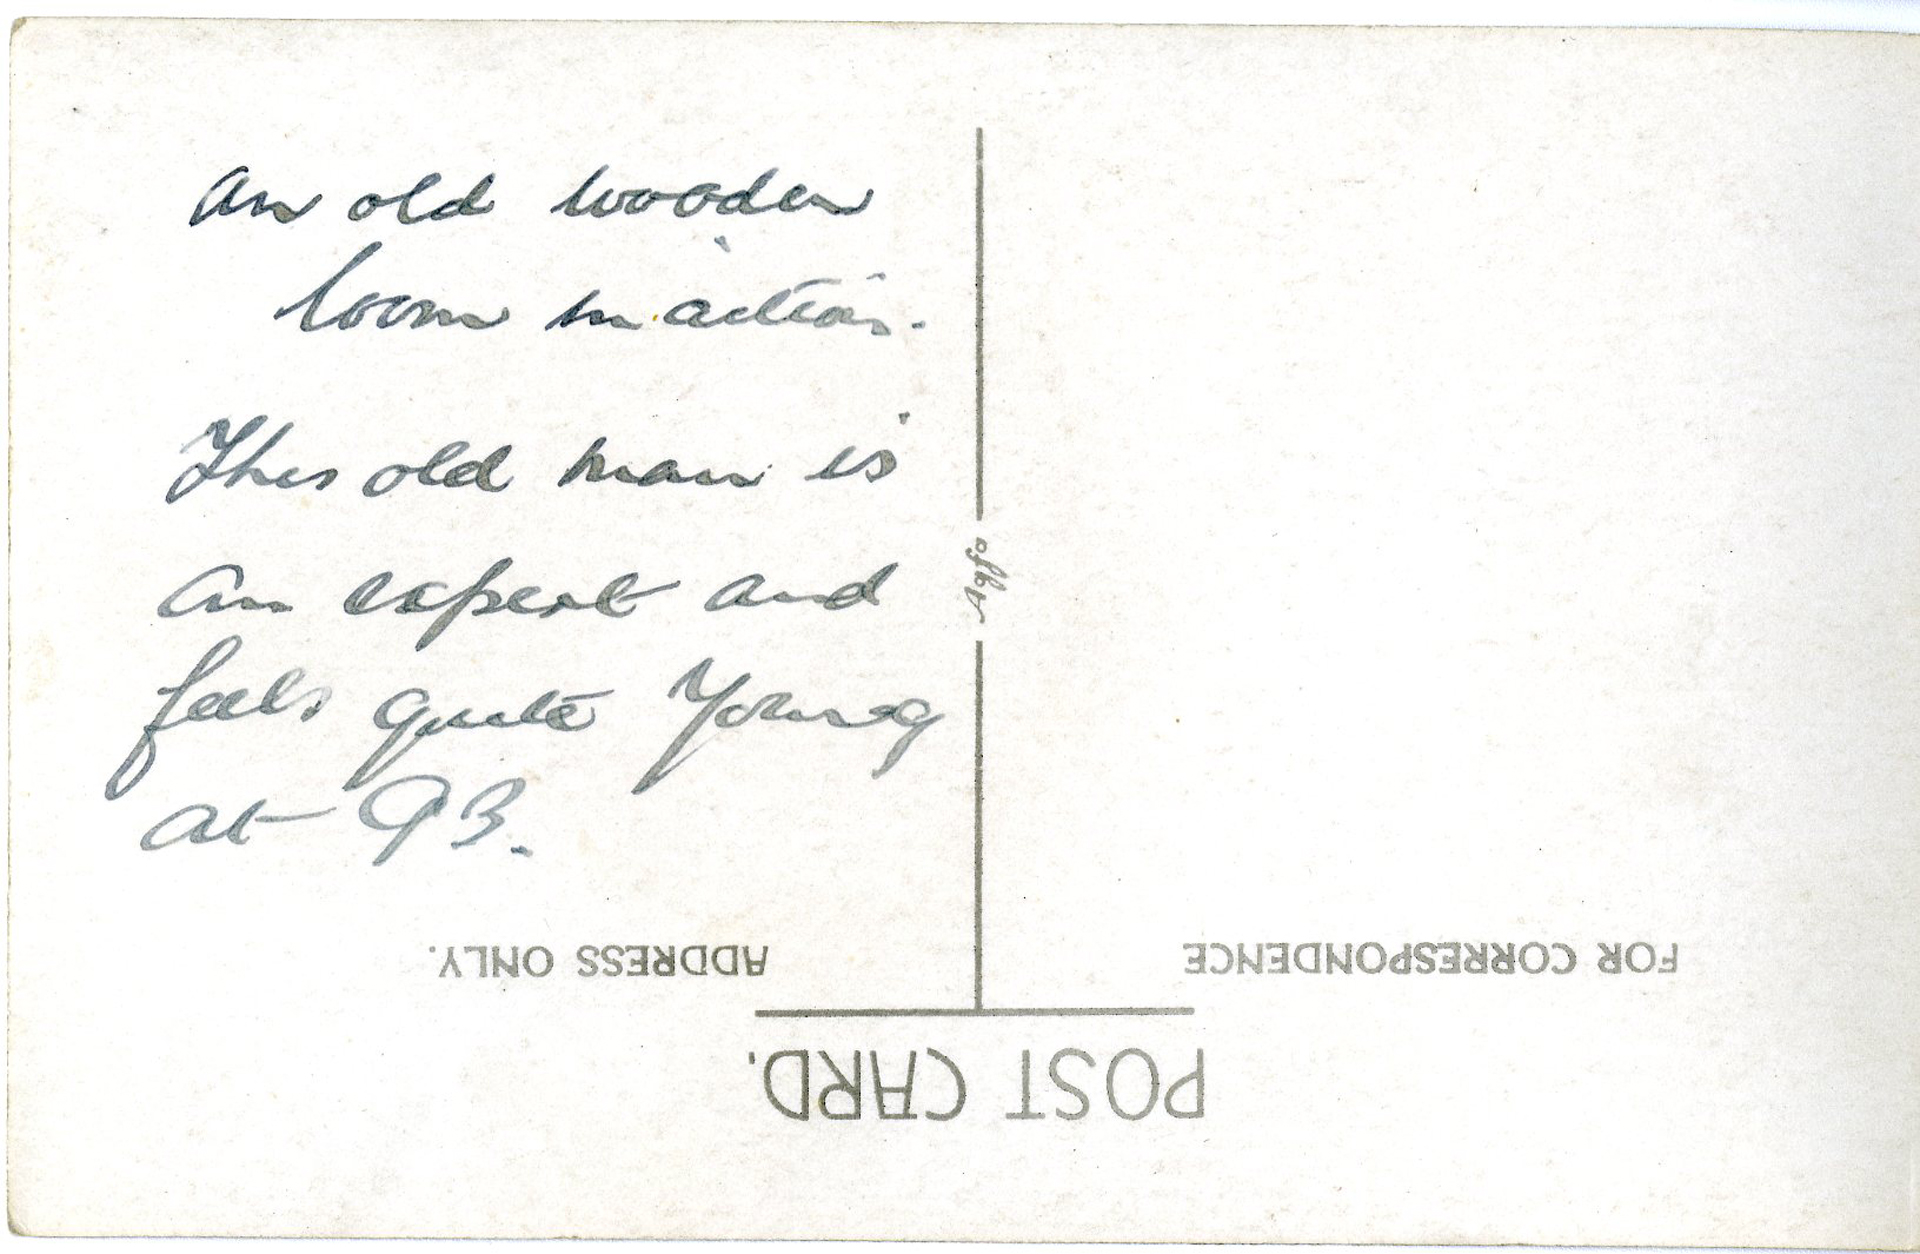 An old wooden
loom in action.
This old man is
an expert and
feels quite Young
at 93.
Agfa
ADDRESS ONLY.
FOR CORRESPONDENCE
POST CARD.